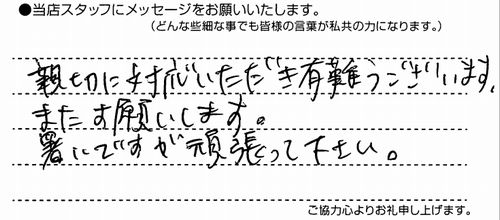 ●当店スタッフにメッセージをお願いいたします。
(どんな些細な事でも皆様の言葉が私共の力になります。)
親切に対応いただき有難うございます。
またお願いします。
暑いですが頑張って下さい。
ご協力心よりお礼申し上げます。